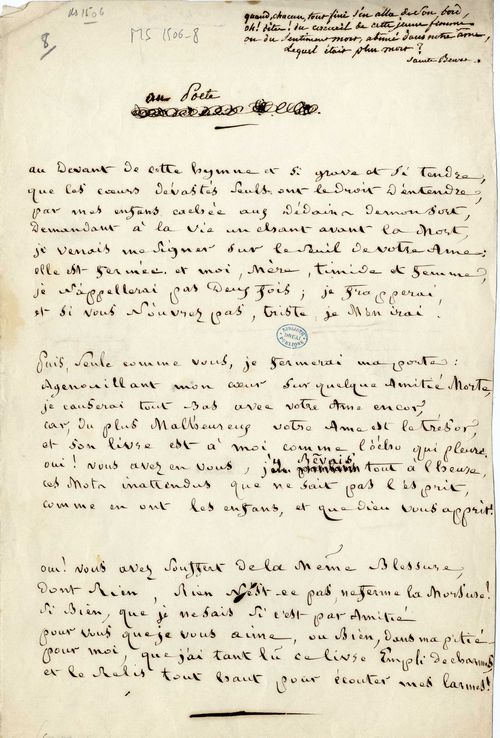 MS 1506
MS 1506-8
8
quand, chacun, tout fini s'en alla de son bord,
oh! dites! du cercueil de cette jeune femme
ou du sentiment mort, abimé dans notre âme,
Lequel était plus mort?
Sainte Beuve.
au Poete
au Devant de cette hymne et si grave et si tendre,
que les cœurs dévastés seuls ont le droit d'entendre,
par mes enfans cachée aux dédains de mon sort,
Demandant à la vie un chant avant la Mort,
je venais me signer sur le seuil de votre Ame:
elle est fermée et moi, Mère, timide et femme,
je n'appellerai pas Deux fois; je frapperai,
et si vous N'ouvrez pas, triste, je M'en irai.
BIBLIOTH. DOUAI PUBLIQUE
Puis, seule comme vous, je fermerai ma porte:
Agenouillant mon cœur sur quelque Amitié Morte,
je causerai tout bas avec votre Ame encor,
car, du plus Malheureux votre Ame est le trésor,
et son livre est à moi comme l'écho qui pleure.
oui! vous avez en vous, j'y Rêvais tout à l'heure,
ces Mots inattendus que ne sait pas l'esprit,
comme en ont les enfans, et que dieu vous apprit!
oui! vous avez souffert de la Même Blessure,
dont Rien, Rien N'est-ce pas, ne ferme la Morsure!
Si Bien, que je ne sais si c'est par Amitié
pour vous que je vous aime, ou Bien, dans ma pitié
pour moi, que j'ai tant lû ce livre Empli de charmes
et le Relis tout haut pour écouter mes larmes!